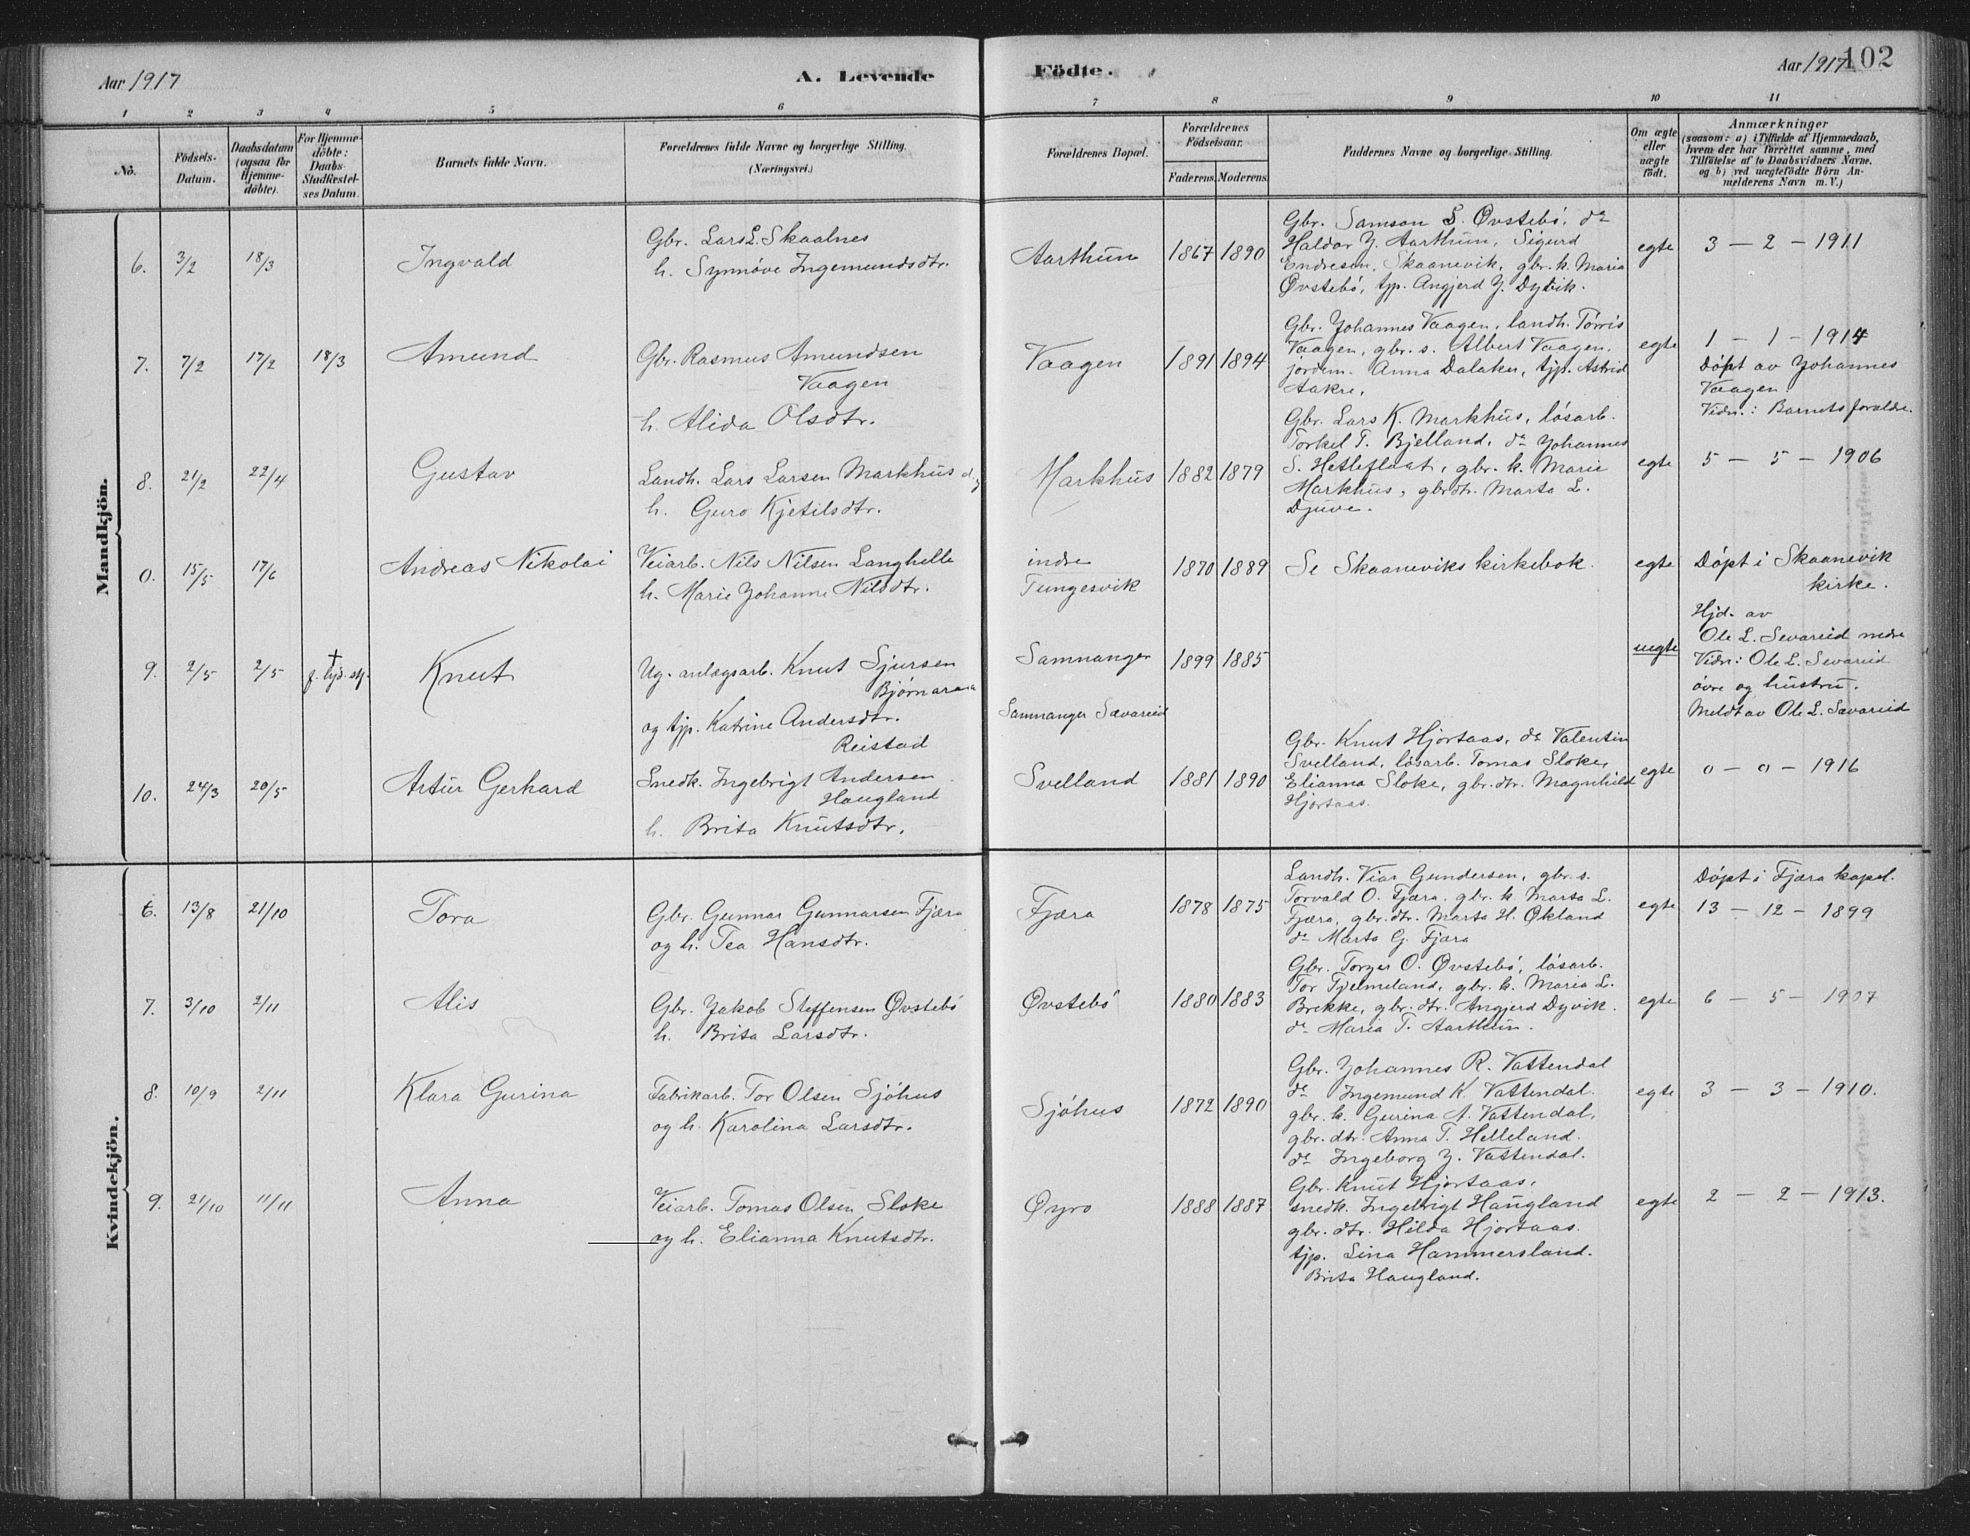 Aar 1917
A. Levende
Födte.
Aar 1917
102
1 2 3 4 5 6 7 8 9 10 11
No.
Födsels-
Datum.
Daabsdatum
(ogsaa for
Hjemme-
döbte).
For Hjemme-
döbte:
Daabs
Stadfæstel-
ses Datum.
Barnets fulde Navn.
Forældrenes fulde Navne og borgerlige Stilling.
(Næringsvei.)
Forældrenes Bopæl.
Forældrenes
Födselsaar.
Faderens. Moderens.
Faddernes Navne og borgerlige Stilling.
Om ægte
eller
uægte
födt.
Anmærkninger
(saasom: a) i Tilfælde af Hjemmedaab,
hvem der har forrettet samme, med
Tilföielse af to Daabsvidners Navne,
og b) ved uægtefödte Börn An-
melderens Navn m. V.)
Mandkjön.
6. 3/2 18/3 Ingvald
Gbr. Lars L. Skaalnes
h. Synnöve Ingemundsdtr.
Aarthun 1867 1890
Gbr. Samson S. Øvstebö, do
Haldor J. Aarthun, Sigurd
Endresen, Skaanevik, gbr. k. Maria
Øvstebö, tjp. Angjerd J. Dyvik.
egte 3 – 2 – 1911
7. 7/2 17/2 18/3 Amund
Gbr. Rasmus Amundsen
Vaagen
h. Alida Olsdtr.
Vaagen 1891 1894
Gbr. Johannes Vaagen, landh. Törris
Vaagen, gbr. s. Albert Vaagen.
jordm. Anna Dalaker, tjp. Astrid
Aakre.
egte 1 – 1 – 1914
Döpt av Johannes
Vaagen.
Vidn.: Barnets foraldre.
8. 21/2 22/4 Gustav
Landh. Lars Larsen Markhus og
h. Guro Kjetilsdtr.
Markhus 1882 1879
Gbr. Lars K. Markhus, lösarb.
Torkel T. Bjelland, do Johannes
S. Hetleflaat, gbr. k. Marie
Markhus, gbrdtr. Marta L.
Djuve.
egte 5 – 5 – 1906
0. 15/5 17/6 Andreas Nikolai
Veiarb. Nils Nilsen Langhelle
h. Marie Johanne Nilsdtr.
indre
Tungesvik
1870 1889 Se Skaaneviks kirkebok. egte
Döpt i Skaanevik
kirke.
9. 2/5 2/5 †
Knut
Ug. anlægsarb. Knut Sjursen
Bjørnaraa
og tjp. Katrine Andersdtr.
Reistad
Samnanger
Samnanger Sævareid
1899 1885 uegte
Hjd. av
Ole L. Sevareid nedre
Vidn: Ole L. Sevareid
övre og hustru.
Meldt av Ole L. Sævareid
10. 24/3 20/5 Artur Gerhard
Snedk. Ingebrigt Andersen
Haugland
h. Brita Knutsdtr.
Svelland 1881 1890
Gbr. Knut Hjortaas, do Valentin
Svelland, lösarb. Tomas Sloke,
Elianna Sloke, gbr. dtr. Magnhild
Hjortaas.
egte 0 – 0 – 1916
Kvindekjön.
6. 13/8 21/10 Tora
Gbr. Gunnar Gunnarsen Fjæra
og h. Tea Hansdtr.
Fjæra 1878 1875
Landh. Viar Gundersen, gbr. s.
Torvald O. Fjæra, gbr. k. Marta L.
Fjæra, gbr. dtr. Marta H. Økland
do Marta G. Fjæra
egte
Döpt i Fjæra kapel.
13 – 12 – 1899
7. 3/10 2/11 Alis
Gbr. Jakob Steffensen Øvstebö
h. Brita Larsdtr.
Øvstebö 1880 1883
Gbr. Torger O. Øvstebö, lösarb.
Tor Fjelmeland, gbr. k. Maria L.
Brekke, gbr. dtr. Angjerd Dyvik.
do Maria T. Aarthun.
egte 6 – 5 – 1907
8. 10/9 2/11 Klara Gurina
Fabrikarb. Tor Olsen Sjöhus
og h. Karolina Larsdtr.
Sjöhus 1872 1890
Gbr. Johannes R. Vattendal
do Ingemund K. Vattendal.
gbr. k. Gurina A. Vattendal,
gbr. dtr. Anna T. Helleland.
do Ingeborg J. Vattendal.
egte 3 – 3 – 1910.
9. 21/10 11/11 Anna
Veiarb. Tomas Olsen Sloke
og h. Elianna Knutsdtr.
Øyro 1888 1887
Gbr. Knut Hjortaas,
snedk. Ingebrigt Haugland
gbr. dtr. Hilda Hjortaas.
tjp. Lina Hammersland.
Brita Haugland.
egte 2 – 2 – 1913.